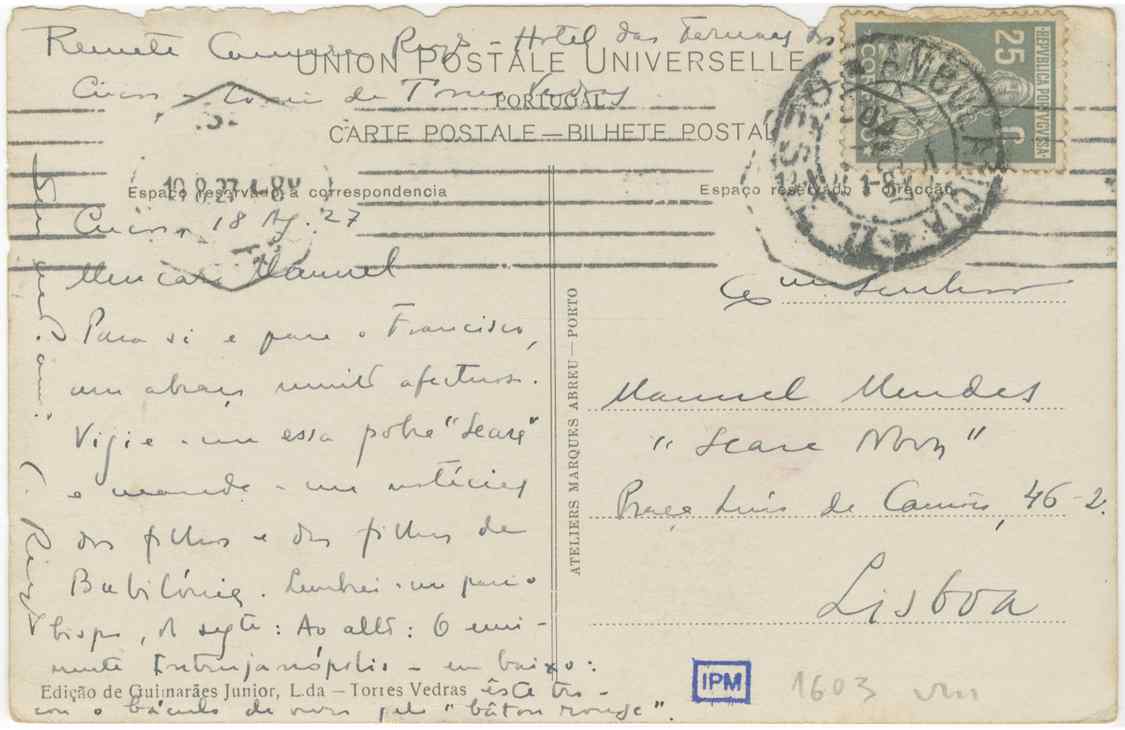 Remete Camara Reys - Hotel das Termas dos
Cucos - Torres Vedras
UNION POSTALE UNIVERSELLE
PORTUGAL
CARTE POSTALE — BILHETE POSTAL
Espaço reservado á correspondencia
Espaço reservado á direcção
25 C.
REPUBLICA PORTUGUESA
CORREIO
AMBULANCIA
19.8.27 1-8M
Cucos, 18 Ag. 27
Meu caro Manuel
Para si e para o Francisco,
um abraço muito afectuoso.
Vigie-me essa pobre "Seara"
e mande-me notícias
dos filhos e das filhas de
Babilónia. Lembrei-me para o
bispo, o segte: Ao alto: O emi-
nente Intrujanópolis - em baixo:
êste tro-
cou o báculo de ouro pelo "bâton rouge".
C. Reys
Edição de Guimarães Junior, L.da — Torres Vedras
ATELIERS MARQUES ABREU — PORTO
Exmo Senhor
Manuel Mendes
"Seara Nova"
Praça Luís de Camões, 46-2.
Lisboa
IPM
1603